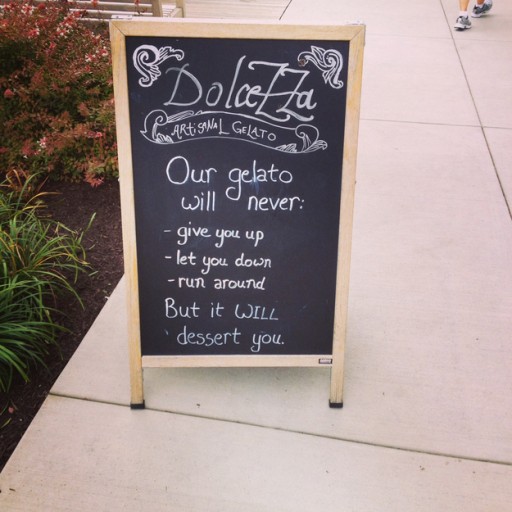 DolceZZa
ARTiSANAL GELATO
Our gelato
will never:
- give you up
- let you down
- run around
But it WILL
dessert you.